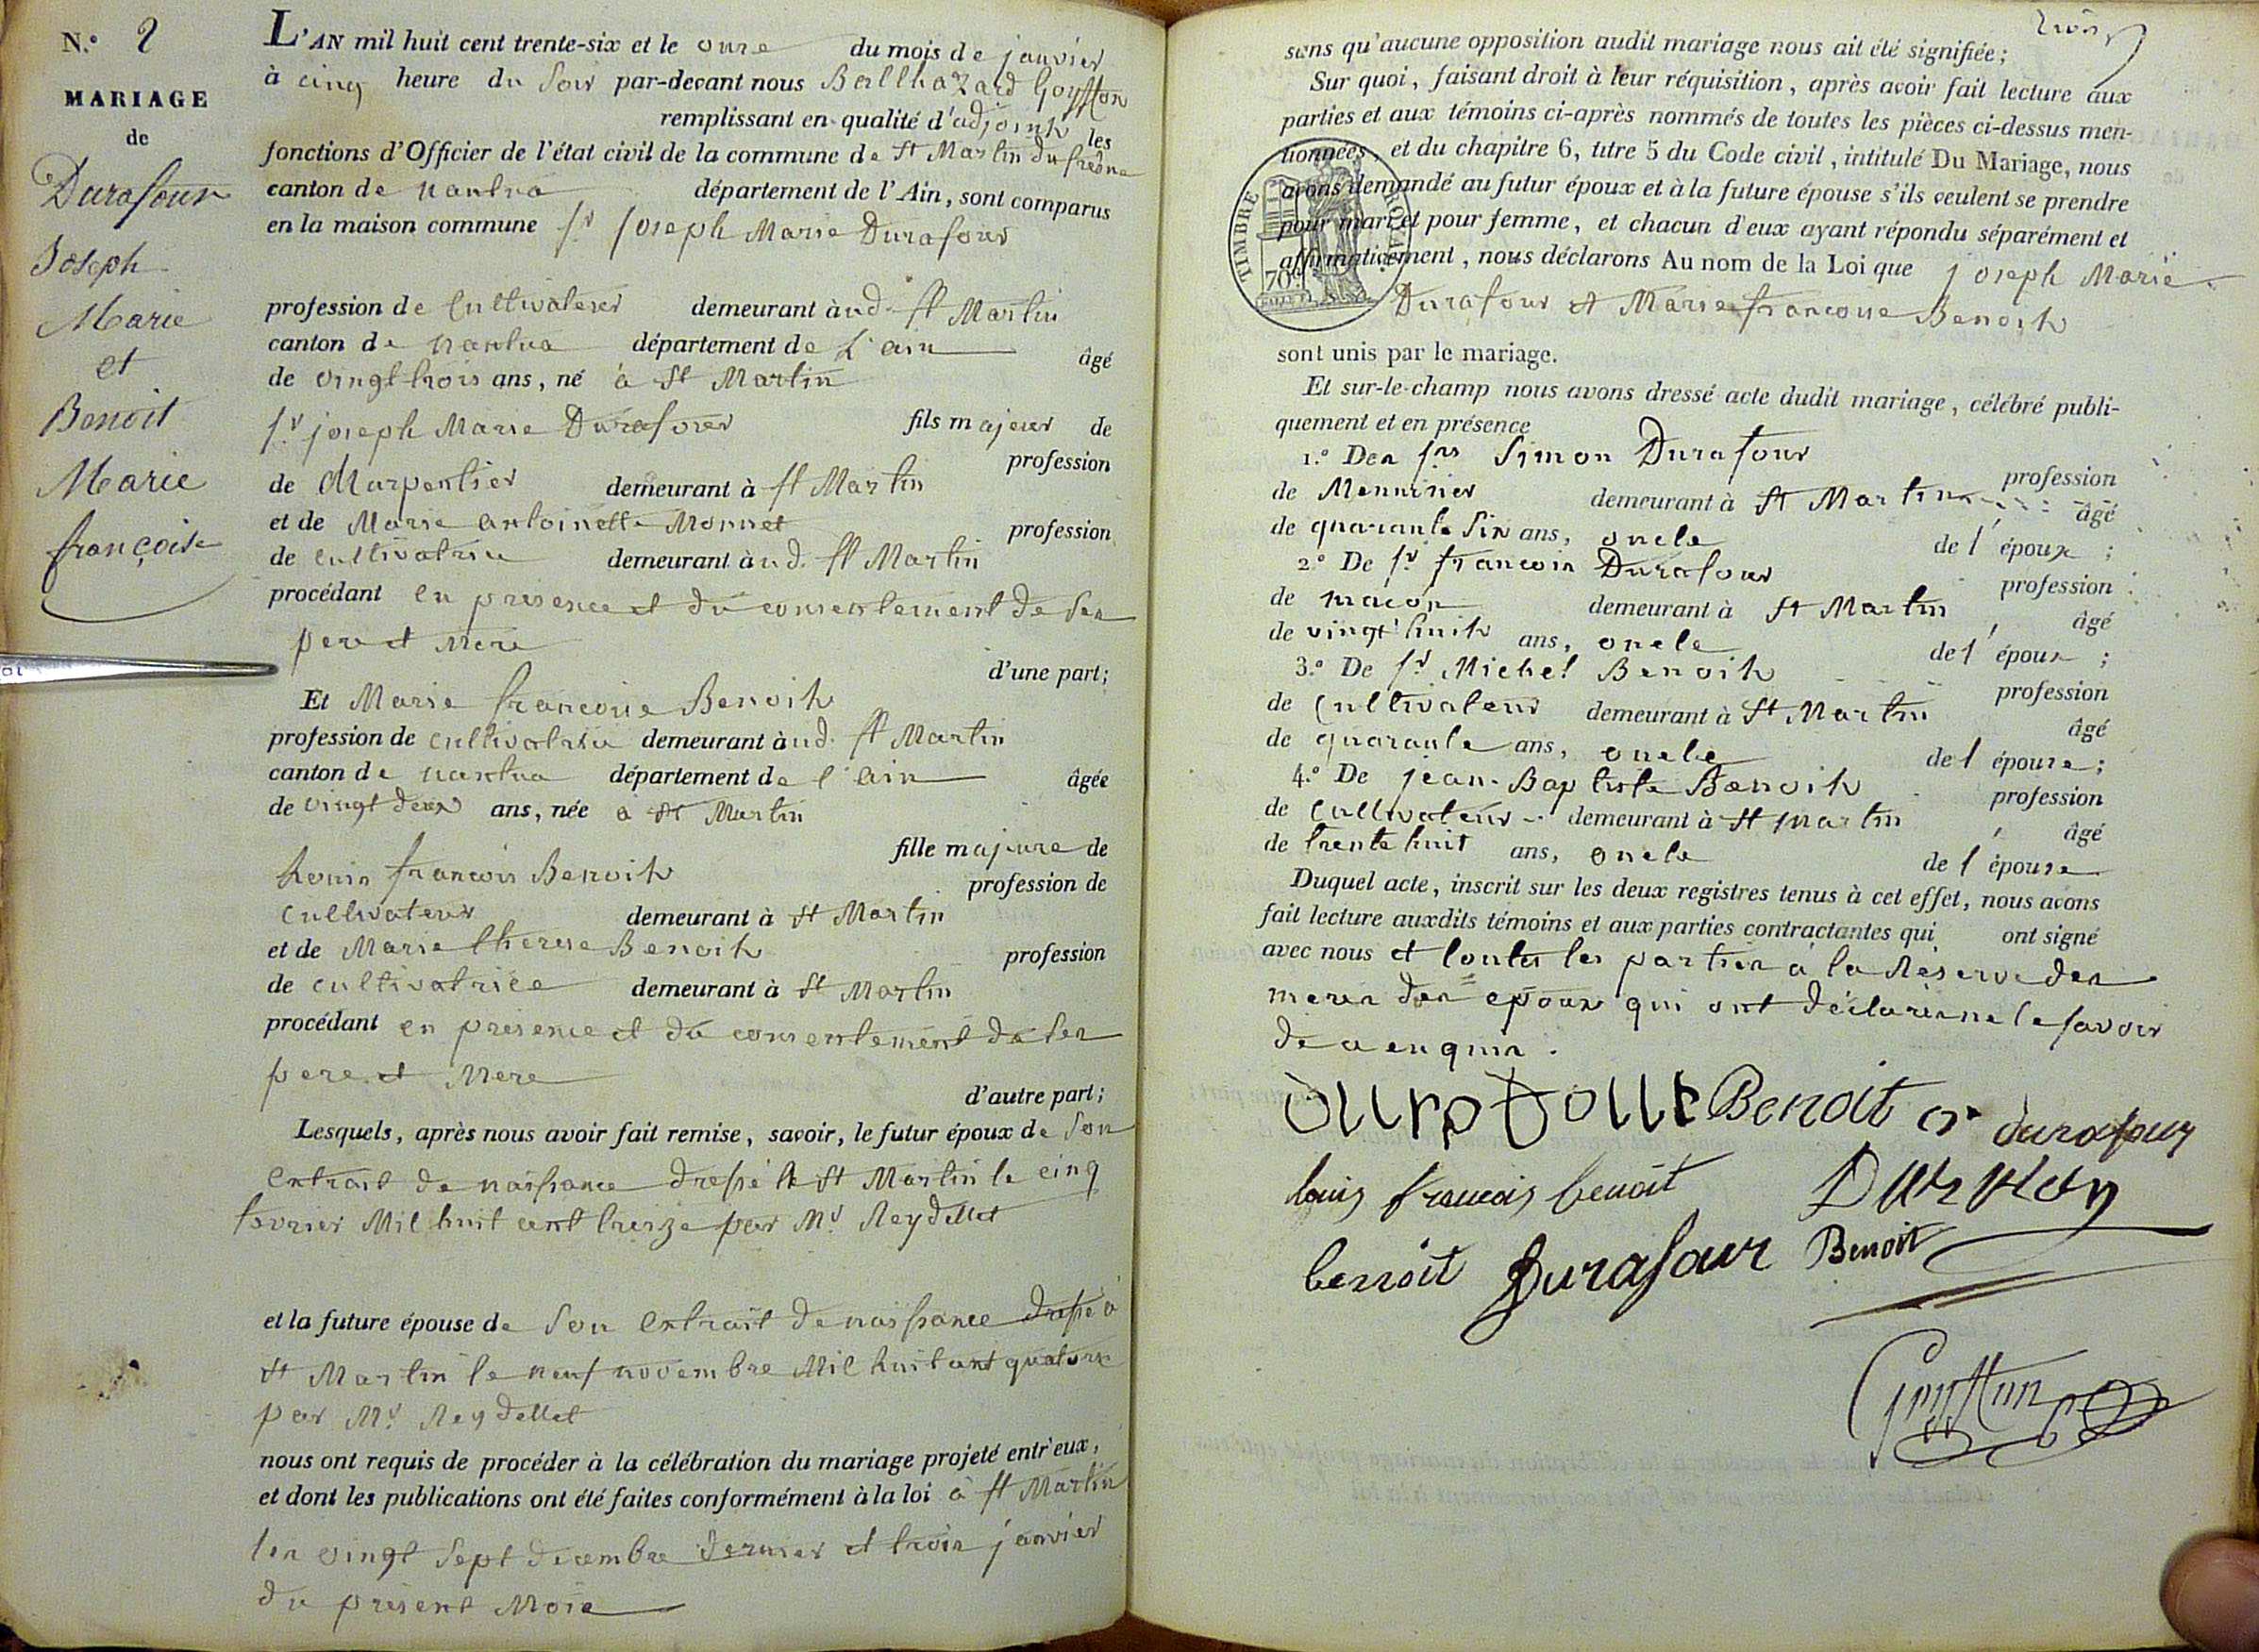 N.º 2
MARIAGE
de
Durafour
Joseph
Marie
et
Benoit
Marie
françoise
L'AN mil huit cent trente-six et le onze du mois de janvier
à cinq heure du Soir par-devant nous Balthazard Goyffon
remplissant en qualité d'adjoint les
fonctions d'Officier de l'état civil de la commune de St Martin du frêne
canton de nantua département de l'Ain, sont comparus
en la maison commune Sr Joseph Marie Durafour
profession de Cultivateur demeurant à ud. St Martin
canton de nantua département de L'ain âgé
de vingt trois ans, né à St Martin
fils majeur de
Sr joseph Marie Durafour profession
de Charpentier demeurant à St Martin
et de Marie antoinette Monnet profession
de cultivatrice demeurant à ud. St Martin
procédant en presence et du consentement de Ses
pere et Mere
d'une part;
Et Marie françoise Benoit
profession de cultivatrice demeurant à ud. St Martin
canton de nantua département de l'ain âgée
de vingt deux ans, née à St Martin
fille majeure de
Louis françois Benoit profession de
Cultivateur demeurant à St Martin
et de Marie therese Benoit profession
de cultivatrice demeurant à St Martin
procédant en presence et du consentement de Ses
pere et Mere
d'autre part;
Lesquels, après nous avoir fait remise, savoir, le futur époux de Son
extrait de naissance dressé à St Martin le cinq
fevrier Mil huit cent treize par Mr Reydellet
et la future épouse de Son extrait de naissance dressé à
St Martin le neuf novembre Mil huit cent quatorze
par Mr Reydellet
nous ont requis de procéder à la célébration du mariage projeté entr'eux,
et dont les publications ont été faites conformément à la loi à St Martin
les vingt Sept decembre dernier et trois janvier
du présent Mois
trois
sans qu'aucune opposition audit mariage nous ait été signifiée;
Sur quoi, faisant droit à leur réquisition, après avoir fait lecture aux
parties et aux témoins ci-après nommés de toutes les pièces ci-dessus men-
tionnées, et du chapitre 6, titre 5 du Code civil, intitulé Du Mariage, nous
avons demandé au futur époux et à la future épouse s'ils veulent se prendre
pour mari et pour femme, et chacun d'eux ayant répondu séparément et
affirmativement, nous déclarons Au nom de la Loi que joseph Marie
Durafour et Marie françoise Benoit
TIMBRE ROYAL
70c
sont unis par le mariage.
Et sur-le-champ nous avons dressé acte dudit mariage, célébré publi-
quement et en présence
1.º Des Srs Simon Durafour profession
de Menuisier demeurant à St Martin âgé
de quarante Six ans, oncle de l'époux;
2º De Sr françois Durafour profession
de maçon demeurant à St Martin, âgé
de vingt huit ans, oncle de l'époux;
3.º De Sr Michel Benoit profession
de Cultivateur demeurant à St Martin âgé
de quarante ans, oncle de l'épouse;
4.º De jean-Baptiste Benoit profession
de Cultivateur demeurant à St Martin, âgé
de trente huit ans, oncle de l'épouse
Duquel acte, inscrit sur les deux registres tenus à cet effet, nous avons
fait lecture auxdits témoins et aux parties contractantes qui ont signé
avec nous et toutes les parties à la Reserve des
meres des epoux qui ont déclarées ne le savoir
de ce enquis.
Durafour Benoit Durafour
louis francois benoit
benoit Durafour Benoit
Goyffon